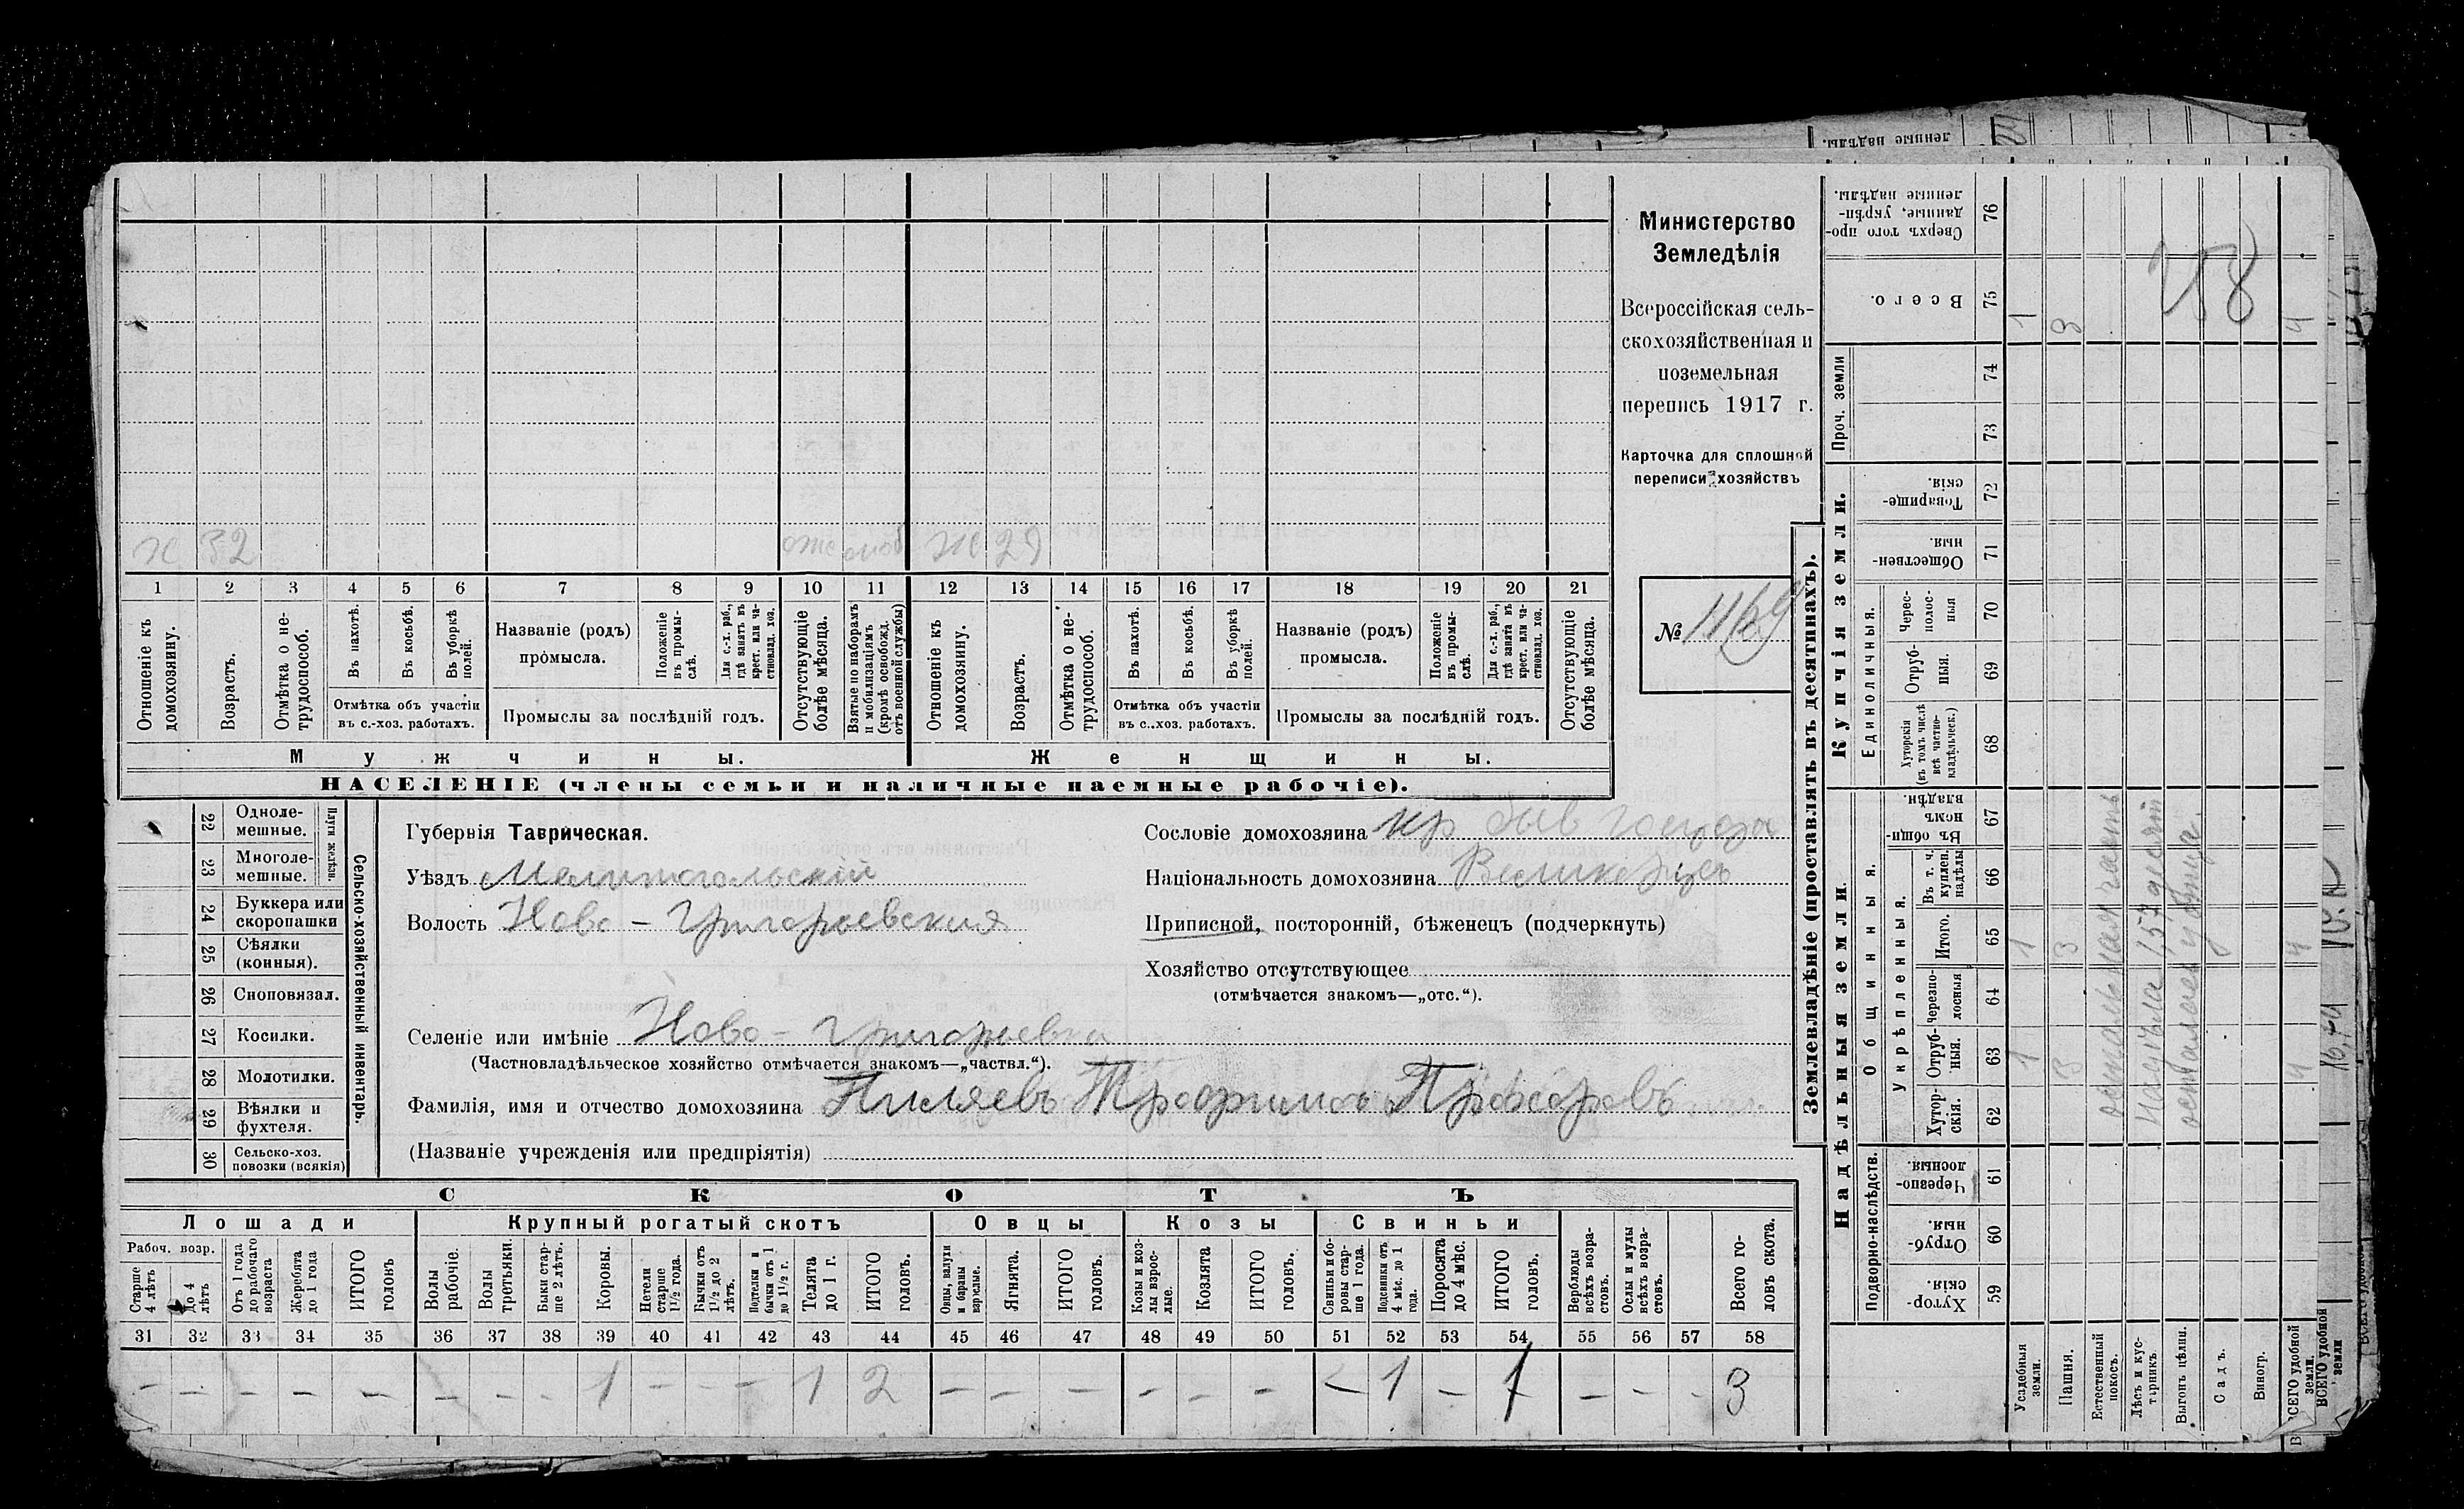 Министерство
Земледѣлія
Всероссійская сель-
скохозяйственная и
поземельная
перепись 1917 г.
Карточка для сплошной
переписи хозяйствъ
№ 1169
ж 32 29
1 2 3 4 5 6 7 8 9 10 11 12 13 14 15 16 17 18 19 20 21
Отношеніе къ домохозяину.
Возрастъ.
Отмѣтка о не-трудоспособ.
Въ пахотѣ.
Въ косьбѣ.
Въ уборкѣ полей.
Отмѣтка объ участіи
въ с.-хоз. работахъ.
Названіе (родъ)
промысла.
Положеніе въ промы-слѣ.
Для с.-х. раб., гдѣ занятъ въ крест. или ча-стновлад. хоз.
Промыслы за послѣдній годъ.
Отсутствующіе болѣе мѣсяца.
Взятые по наборамъ и мобилизаціямъ (кромѣ освобожд. отъ военной службы)
Отношеніе къ домохозяину.
Возрастъ.
Отмѣтка о не-трудоспособ.
Въ пахотѣ.
Въ косьбѣ.
Въ уборкѣ полей.
Отмѣтка объ участіи
въ с.-хоз. работахъ.
Названіе (родъ)
промысла.
Положеніе въ промы-слѣ.
Для с.-х. раб., гдѣ занята въ крест. или ча-стновлад. хоз.
Промыслы за послѣдній годъ.
Отсутствующіе болѣе мѣсяца.
Мужчины. Женщины.
НАСЕЛЕНІЕ (члены семьи и наличные наемные рабочіе).
Сельско-хозяйственный инвентарь.
Плуги желѣзн.
22 Одноле-мешные.
23 Многоле-мешные.
24 Буккера или скоропашки
25 Сѣялки (конныя).
26 Сноповязал.
27 Косилки.
28 Молотилки.
29 Вѣялки и фухтеля.
30 Сельско-хоз. повозки (всякія)
Губернія Таврическая.
Уѣздъ Мелитопольскій
Волость Ново-Григорьевская
Селеніе или имѣніе Ново-Григорьевка
(Частновладѣльческое хозяйство отмѣчается знакомъ—„частвл.“).
Фамилія, имя и отчество домохозяина Пиляевъ Трофимъ
(Названіе учрежденія или предпріятія)
Сословіе домохозяина кр быв
Національность домохозяина
Приписной, посторонній, бѣженецъ (подчеркнуть)
Хозяйство отсутствующее
(отмѣчается знакомъ—„отс.“).
СКОТЪ
Лошади Крупный рогатый скотъ Овцы Козы Свиньи
Рабоч. возр.
Старше 4 лѣтъ
До 4 лѣтъ
Отъ 1 года до рабочаго возраста
Жеребята до 1 года
ИТОГО головъ
Волы рабочіе.
Волы третьяки.
Быки стар-ше 2 лѣтъ.
Коровы.
Нетели старше 1½ года.
Бычки отъ 1½ до 2 лѣтъ.
Подтелки и бычки отъ 1 до 1½ г.
Телята до 1 г.
ИТОГО головъ.
Овцы, валухи и бараны взрослые.
Ягнята.
ИТОГО головъ.
Козы и коз-лы взрос-лые.
Козлята
ИТОГО головъ.
Свиньи и бо-ровы стар-ше 1 года.
Подсвинки отъ 4 мѣс. до 1 года.
Поросята до 4 мѣс.
ИТОГО головъ.
Верблюды всѣхъ возра-стовъ.
Ослы и мулы всѣхъ возра-стовъ.
Всего го-ловъ скота.
31 32 33 34 35 36 37 38 39 40 41 42 43 44 45 46 47 48 49 50 51 52 53 54 55 56 57 58
– – – – – – – – 1 – – – 1 2 – – – – – – – 1 – 1 – – – 3
Землевладѣніе (проставлять въ десятинахъ).
Купчія земли.
Надѣльныя земли.
Сверхъ того про-данные, укрѣп-ленные надѣлы. 76
Всего. 75
Проч. земли 74 73
Товарище-скія. 72
Обществен-ныя. 71
Единоличныя.
Черес-полос-ныя 70
Отруб-ныя. 69
Хуторскія (въ томъ числѣ всѣ частно-владѣльческ.) 68
Общинныя.
Въ общи-номъ владѣн. 67
Укрѣпленныя.
Въ т. ч. куплен. надѣлы 66
Итого. 65
Черезпо-лосныя 64
Отруб-ныя. 63
Хутор-скія. 62
Подворно-наслѣдств.
Черезпо-лосныя. 61
Отруб-ныя. 60
Хутор-скія. 59
Усадебныя земли. 1 1 1
Пашня. 3 3 3
Естественный покосъ.
Лѣсъ и кус-тарникъ.
Выгонъ цѣлин.
Садъ.
Виногр.
ВСЕГО удобной земли. 4 4 4
остальная часть
надѣла
осталась у отца.
258
ВСЕГО удобной земли
ленные надѣлы.